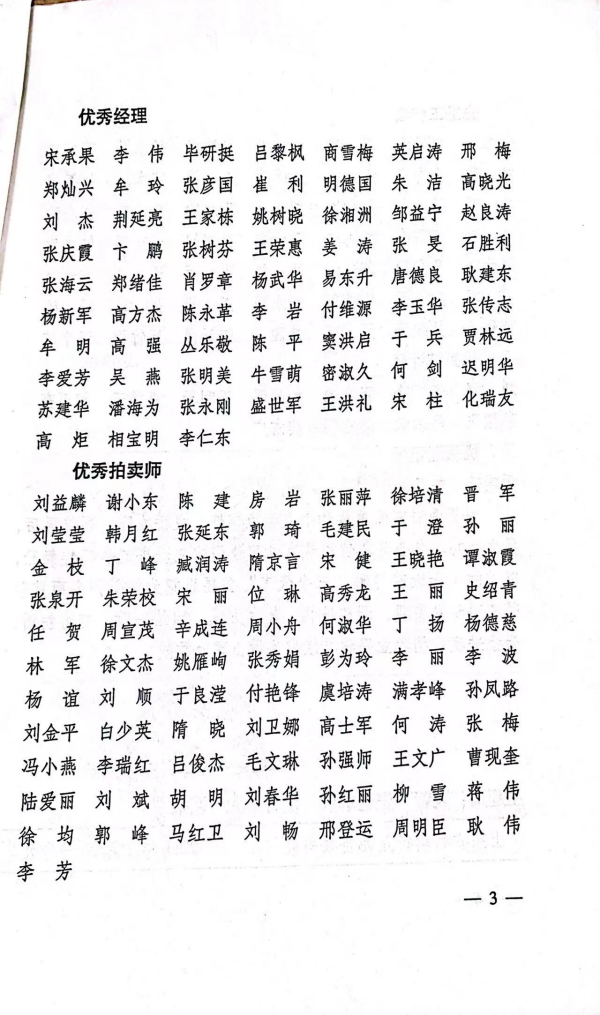 优秀经理
宋承果 李 伟 毕研挺 吕黎枫 商雪梅 英启涛 邢 梅
郑灿兴 牟 玲 张彦国 崔 利 明德国 朱 洁 高晓光
刘 杰 荆延亮 王家栋 姚树晓 徐湘洲 邹益宁 赵良涛
张庆霞 卞 鹏 张树芬 王荣惠 姜 涛 张 旻 石胜利
张海云 郑绪佳 肖罗章 杨武华 易东升 唐德良 耿建东
杨新军 高方杰 陈永革 李 岩 付维源 李玉华 张传志
牟 明 高 强 丛乐敬 陈 平 窦洪启 于 兵 贾林远
李爱芳 吴 燕 张明美 牛雪萌 密淑久 何 剑 迟明华
苏建华 潘海为 张永刚 盛世军 王洪礼 宋 柱 化瑞友
高 炬 相宝明 李仁东
优秀拍卖师
刘益麟 谢小东 陈 建 房 岩 张丽萍 徐培清 晋 军
刘莹莹 韩月红 张延东 郭 琦 毛建民 于 澄 孙 丽
金 枝 丁 峰 臧润涛 隋京言 宋 健 王晓艳 谭淑霞
张泉开 朱荣校 宋 丽 位 琳 高秀龙 王 丽 史绍青
任 贺 周宣茂 辛成连 周小舟 何淑华 丁 扬 杨德慈
林 军 徐文杰 姚雁峋 张秀娟 彭为玲 李 丽 李 波
杨 谊 刘 顺 于良滢 付艳锋 虞培涛 满孝峰 孙凤路
刘金平 白少英 隋 晓 刘卫娜 高士军 何 涛 张 梅
冯小燕 李瑞红 吕俊杰 毛文琳 孙强师 王文广 曹现奎
陆爱丽 刘 斌 胡 明 刘春华 孙红丽 柳 雪 蒋 伟
徐 均 郭 峰 马红卫 刘 畅 邢登运 周明臣 耿 伟
李 芳
— 3 —